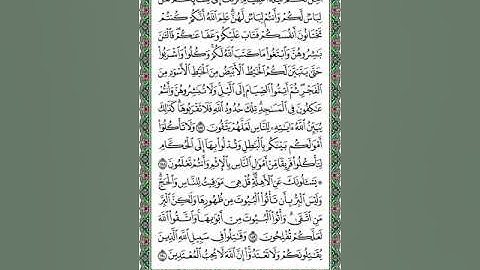 أُحِلَّ لَكُمْ لَيْلَةَ ٱلصِّيَامِ ٱلرَّفَثُ إِلَىٰ نِسَآئِكُمْ هُنَّ
لِبَاسٌ لَّكُمْ وَأَنتُمْ لِبَاسٌ لَّهُنَّ عَلِمَ ٱللَّهُ أَنَّكُمْ كُنتُمْ
تَخْتَانُونَ أَنفُسَكُمْ فَتَابَ عَلَيْكُمْ وَعَفَا عَنكُمْ فَٱلْـَٰٔنَ
بَـٰشِرُوهُنَّ وَٱبْتَغُوا۟ مَا كَتَبَ ٱللَّهُ لَكُمْ وَكُلُوا۟ وَٱشْرَبُوا۟
حَتَّىٰ يَتَبَيَّنَ لَكُمُ ٱلْخَيْطُ ٱلْأَبْيَضُ مِنَ ٱلْخَيْطِ ٱلْأَسْوَدِ مِنَ
ٱلْفَجْرِ ثُمَّ أَتِمُّوا۟ ٱلصِّيَامَ إِلَى ٱلَّيْلِ وَلَا تُبَـٰشِرُوهُنَّ وَأَنتُمْ
عَـٰكِفُونَ فِى ٱلْمَسَـٰجِدِ تِلْكَ حُدُودُ ٱللَّهِ فَلَا تَقْرَبُوهَا كَذَٰلِكَ
يُبَيِّنُ ٱللَّهُ ءَايَـٰتِهِۦ لِلنَّاسِ لَعَلَّهُمْ يَتَّقُونَ ١٨٧ وَلَا تَأْكُلُوٓا۟
أَمْوَٰلَكُم بَيْنَكُم بِٱلْبَـٰطِلِ وَتُدْلُوا۟ بِهَآ إِلَى ٱلْحُكَّامِ
لِتَأْكُلُوا۟ فَرِيقًا مِّنْ أَمْوَٰلِ ٱلنَّاسِ بِٱلْإِثْمِ وَأَنتُمْ تَعْلَمُونَ ١٨٨
۞ يَسْـَٔلُونَكَ عَنِ ٱلْأَهِلَّةِ قُلْ هِىَ مَوَٰقِيتُ لِلنَّاسِ وَٱلْحَجِّ
وَلَيْسَ ٱلْبِرُّ بِأَن تَأْتُوا۟ ٱلْبُيُوتَ مِن ظُهُورِهَا وَلَـٰكِنَّ ٱلْبِرَّ
مَنِ ٱتَّقَىٰ وَأْتُوا۟ ٱلْبُيُوتَ مِنْ أَبْوَٰبِهَا وَٱتَّقُوا۟ ٱللَّهَ
لَعَلَّكُمْ تُفْلِحُونَ ١٨٩ وَقَـٰتِلُوا۟ فِى سَبِيلِ ٱللَّهِ ٱلَّذِينَ
يُقَـٰتِلُونَكُمْ وَلَا تَعْتَدُوٓا۟ إِنَّ ٱللَّهَ لَا يُحِبُّ ٱلْمُعْتَدِينَ ١٩٠